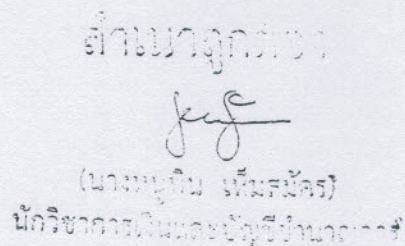 สำเนาถูกต้อง
(นาง เต็มสมัคร)
นักวิชาการเงินและบัญชีชำนาญการ